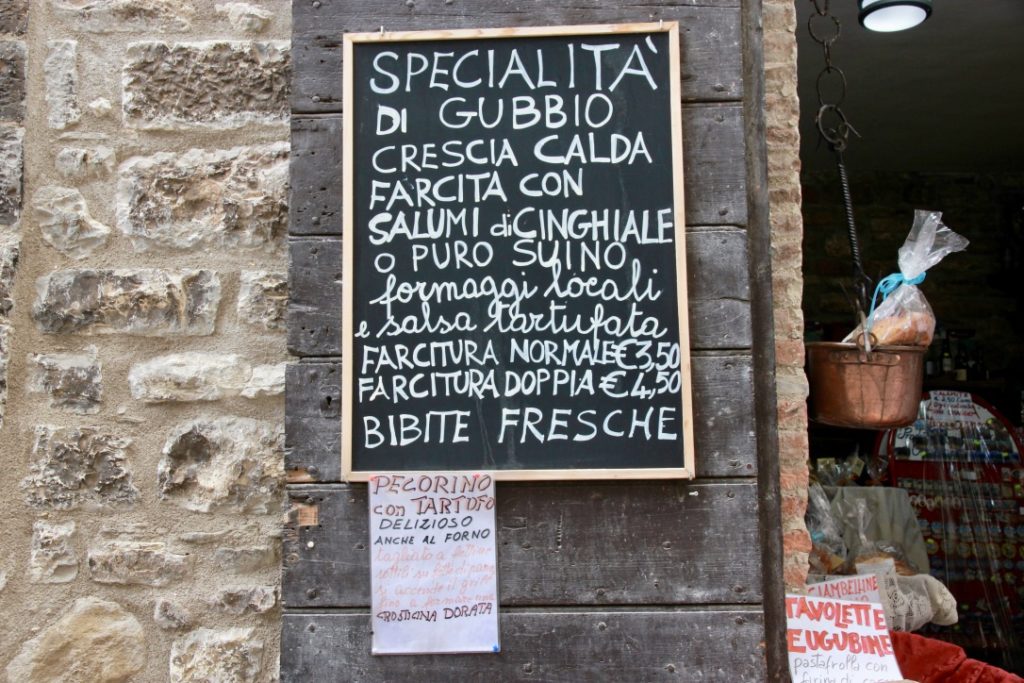 SPECIALITÀ
DI GUBBIO
CRESCIA CALDA
FARCITA CON
SALUMI di CINGHIALE
O PURO SUINO
formaggi locali
e salsa tartufata
FARCITURA NORMALE €3,50
FARCITURA DOPPIA €4,50
BIBITE FRESCHE
PECORINO
con TARTUFO
DELIZIOSO
ANCHE AL FORNO
tagliato a fettine
sottili su fette di pane
si accende il grill
fino a formare una
CROSTICINA DORATA
CIAMBELLINE
TAVOLETTE
EUGUBINE
pastafrolla con
farina di